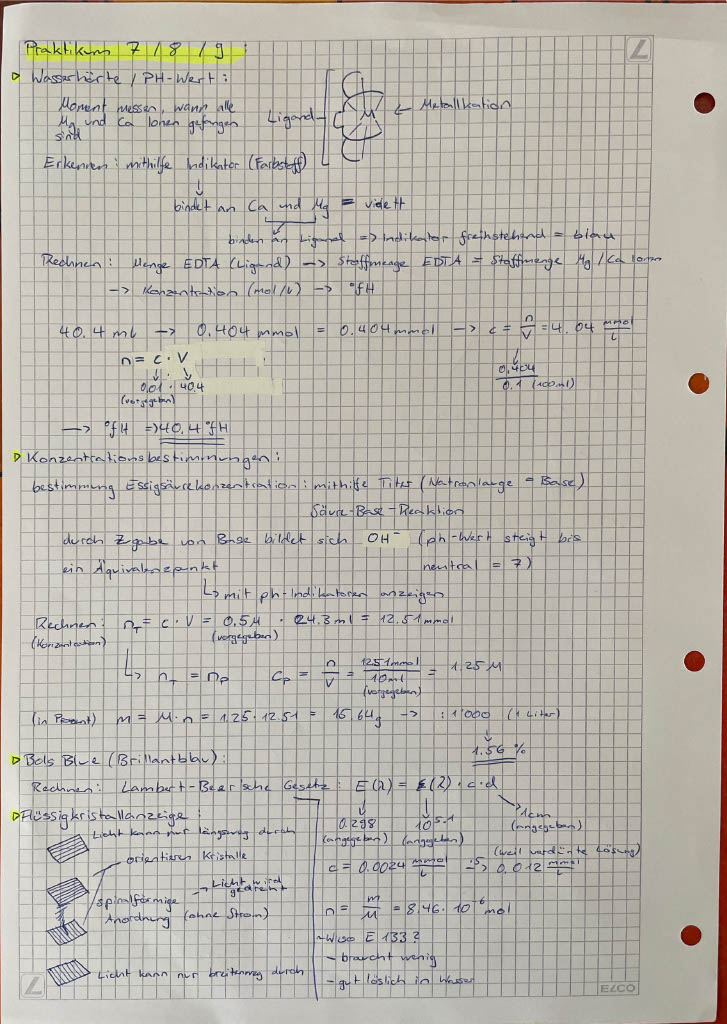 Praktikum 7 / 8 / 9 :
Wasserhärte / PH-Wert :
Moment messen, wann alle
Mg und Ca Ionen gefangen
sind
Ligand
M
← Metallkation
Erkennen : mithilfe Indikator (Farbstoff)
bindet an Ca und Mg = violett
binden an Ligand => Indikator freihstehend = blau
Rechnen : Menge EDTA (Ligand) → Stoffmenge EDTA = Stoffmenge Mg / Ca Ionen
→ Konzentration (mol/L) → °fH
40.4 ml → 0.404 mmol = 0.404 mmol → c = n/V = 4.04 mmol/L
n = c · V
0.01 · 40.4
(vorgegeben)
0.404 / 0.1 (100ml)
→ °fH => 40.4 °fH
Konzentrationsbestimmungen :
bestimmung Essigsäurekonzentration : mithilfe Titer (Natronlauge = Base)
Säure-Base-Reaktion
durch Zugabe von Base bildet sich OH⁻ (ph-Wert steigt bis
ein Äquivalenzpunkt neutral = 7)
↳ mit ph-Indikatoren anzeigen
Rechnen : n_T = c · V = 0.5M · 24.3 ml = 12.51 mmol
(Konzentration) (vorgegeben)
↳ n_T = n_P c_P = n/V = 12.51 mmol / 10 ml = 1.25 M
(vorgegeben)
(in Prozent) m = M · n = 1.25 · 12.51 = 15.64g → : 1'000 (1 Liter)
1.56 %
Bols Blue (Brillantblau) :
Rechnen : Lambert-Beer'sche Gesetz : E(λ) = ε(λ) · c · d
0.298
(angegeben)
10^5.1
(angegeben)
1cm
(angegeben)
c = 0.0024 mmol/L ·5→ 0.012 mmol/L
(weil verdünte Lösung)
n = m/M = 8.46 · 10⁻⁶ mol
~Wiso E 133 ?
- braucht wenig
- gut löslich in Wasser
Flüssigkristallanzeige :
Licht kann nur längsweg durch
orientieren Kristalle
spiralförmige → Licht wird
gedreht
Anordnung (ohne Strom)
Licht kann nur breitenweg durch
ELCO